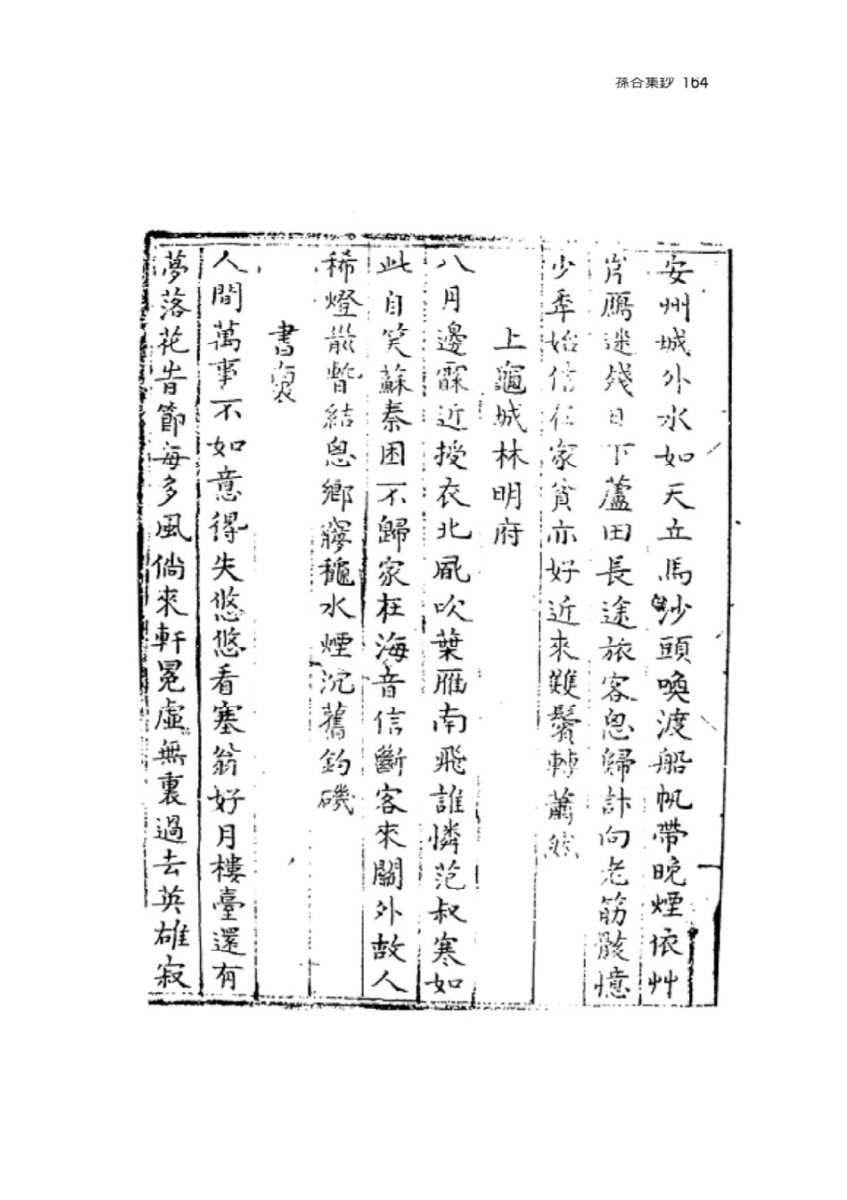 孫谷集鈔 164
安州城外水如天立馬沙頭喚渡船帆帶晚煙依艸
岸鴈迷殘日下蘆田長途旅客悤歸計向老筋骸憶
少秊始信在家貧亦好近來雙鬢轉蕭然
上龜城林明府
八月邊霖近授衣北風吹葉雁南飛誰憐范叔寒如
此自笑蘇秦困不歸家在海音信斷客來關外故人
稀燈前暫結思鄉夢穐水煙沉舊釣磯
書懷
人間萬事不如意得失悠悠看塞翁好月樓臺還有
夢落花時節每多風倘來軒冕虛無裏過去英雄寂